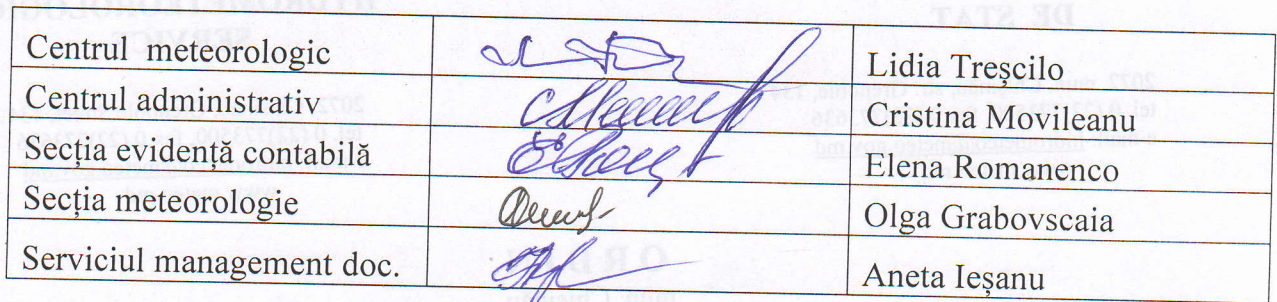 Centrul meteorologic Lidia Treșcilo
Centrul administrativ Cristina Movileanu
Secția evidență contabilă Elena Romanenco
Secția meteorologie Olga Grabovscaia
Serviciul management doc. Aneta Ieșanu